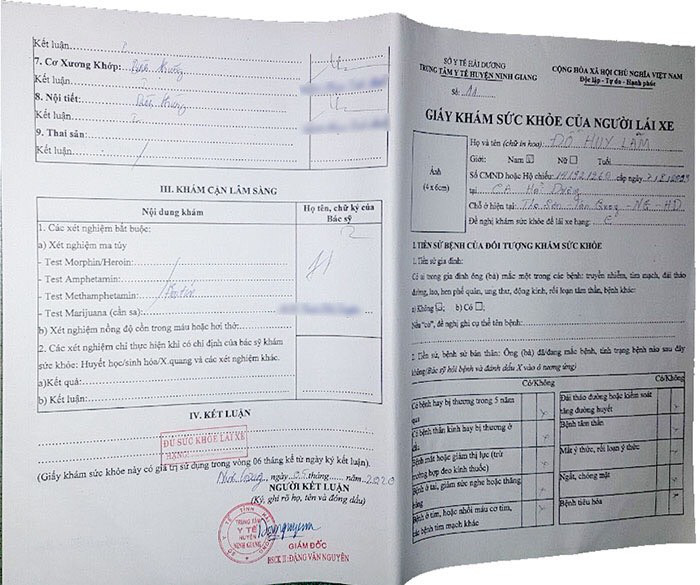 Kết luận
7. Cơ Xương Khớp: Bình thường
Kết luận
8. Nội tiết: Bình thường
Kết luận
9. Thai sản:
Kết luận
III. KHÁM CẬN LÂM SÀNG
Nội dung khám
Họ tên, chữ ký của Bác sỹ
1. Các xét nghiệm bắt buộc:
a) Xét nghiệm ma túy
- Test Morphin/Heroin:
- Test Amphetamin:
- Test Methamphetamin:
- Test Marijuana (cần sa):
b) Xét nghiệm nồng độ cồn trong máu hoặc hơi thở:
2. Các xét nghiệm chỉ thực hiện khi có chỉ định của bác sỹ khám
sức khỏe: Huyết học/sinh hóa/X.quang và các xét nghiệm khác.
a)Kết quả:
b) Kết luận:
IV. KẾT LUẬN
ĐỦ SỨC KHỎE LÁI XE
HẠNG:
(Giấy khám sức khỏe này có giá trị sử dụng trong vòng 06 tháng kể từ ngày ký kết luận).
ngày 05 tháng năm 2020
NGƯỜI KẾT LUẬN
(Ký, ghi rõ họ, tên và đóng dấu)
TRUNG TÂM
Y TẾ
HUYỆN
NINH GIANG
GIÁM ĐỐC
BSCK II: ĐẶNG VĂN NGUYÊN
SỞ Y TẾ HẢI DƯƠNG
TRUNG TÂM Y TẾ HUYỆN NINH GIANG
Số: 11
CỘNG HÒA XÃ HỘI CHỦ NGHĨA VIỆT NAM
Độc lập - Tự do - Hạnh phúc
GIẤY KHÁM SỨC KHỎE CỦA NGƯỜI LÁI XE
Ảnh
(4 x 6cm)
Họ và tên (chữ in hoa): ĐỖ HUY LÂM
Giới: Nam Nữ Tuổi
Số CMND hoặc Hộ chiếu: cấp ngày
tại CA Hải Dương
Chỗ ở hiện tại: - NG - HD
Đề nghị khám sức khỏe để lái xe hạng: E
I. TIỀN SỬ BỆNH CỦA ĐỐI TƯỢNG KHÁM SỨC KHỎE
1. Tiền sử gia đình:
Có ai trong gia đình ông (bà) mắc một trong các bệnh: truyền nhiễm, tim mạch, đái tháo
đường, lao, hen phế quản, ung thư, động kinh, rối loạn tâm thần, bệnh khác:
a) Không b) Có
Nếu "có", đề nghị ghi cụ thể tên bệnh:
2. Tiền sử, bệnh sử bản thân: Ông (bà) đã/đang mắc bệnh, tình trạng bệnh nào sau đây
không (Bác sỹ hỏi bệnh và đánh dấu X vào ô tương ứng)
Có Không
Có Không
Có bệnh hay bị thương trong 5 năm
qua
Có bệnh thần kinh hay bị thương ở
Bệnh mắt hoặc giảm thị lực (trừ
trường hợp đeo kính thuốc)
Bệnh ở tai, giảm sức nghe hoặc thăng
bằng
Bệnh ở tim, hoặc nhồi máu cơ tim,
các bệnh tim mạch khác
Đái tháo đường hoặc kiểm soát
tăng đường huyết
Bệnh tâm thần
Mất ý thức, rối loạn ý thức
Ngất, chóng mặt
Bệnh tiêu hóa